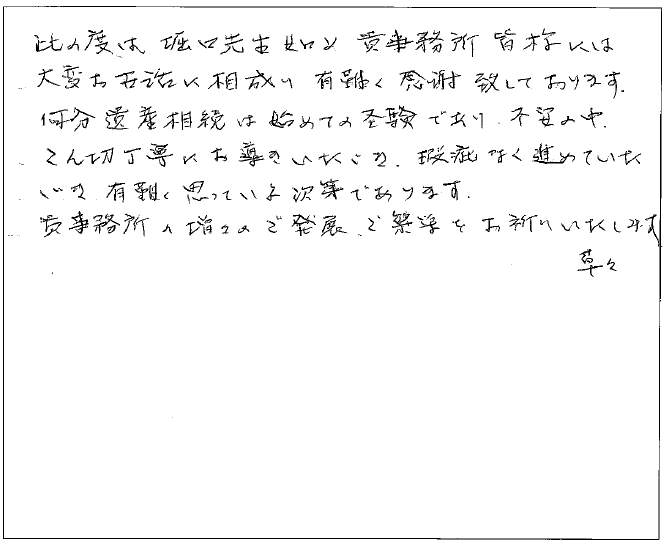 此の度は 堀口先生始め 貴事務所 皆様には
大変お世話に相成り 有難く 感謝 致しております.
何分 遺産相続は始めての経験であり 不安の中.
こん切丁寧にお導きいただき. 瑕疵なく進めていた
だき 有難く思っている次第であります.
貴事務所の増々のご発展、ご繁栄をお祈りいたします
草々